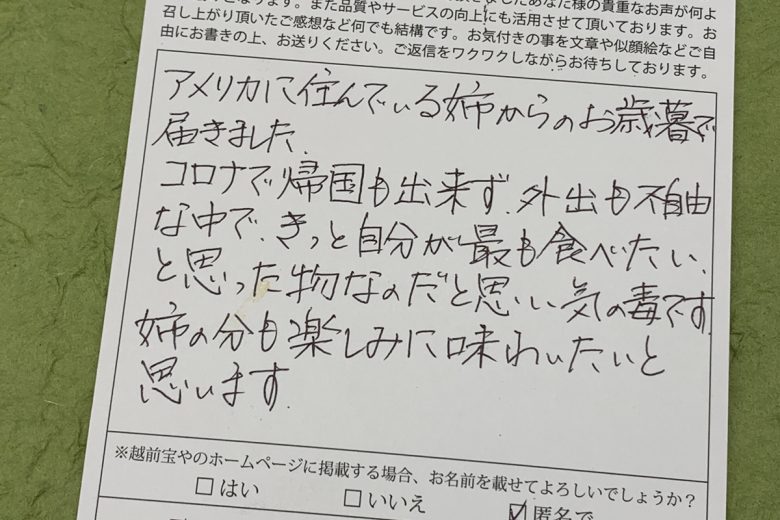 また品質やサービスの向上にも活用させて頂いております。お
召し上がり頂いたご感想など何でも結構です。お気付きの事を文章や似顔絵などご自
由にお書きの上、お送りください。ご返信をワクワクしながらお待ちしております。
アメリカに住んでいる姉からのお歳暮で
届きました.
コロナで帰国も出来ず、外出も不自由
な中で、きっと自分が最も食べたい、
と思った物なのだと思い気の毒です
姉の分も楽しみに味わいたいと
思います.
※越前宝やのホームページに掲載する場合、お名前を載せてよろしいでしょうか？
□はい □いいえ ☑匿名で